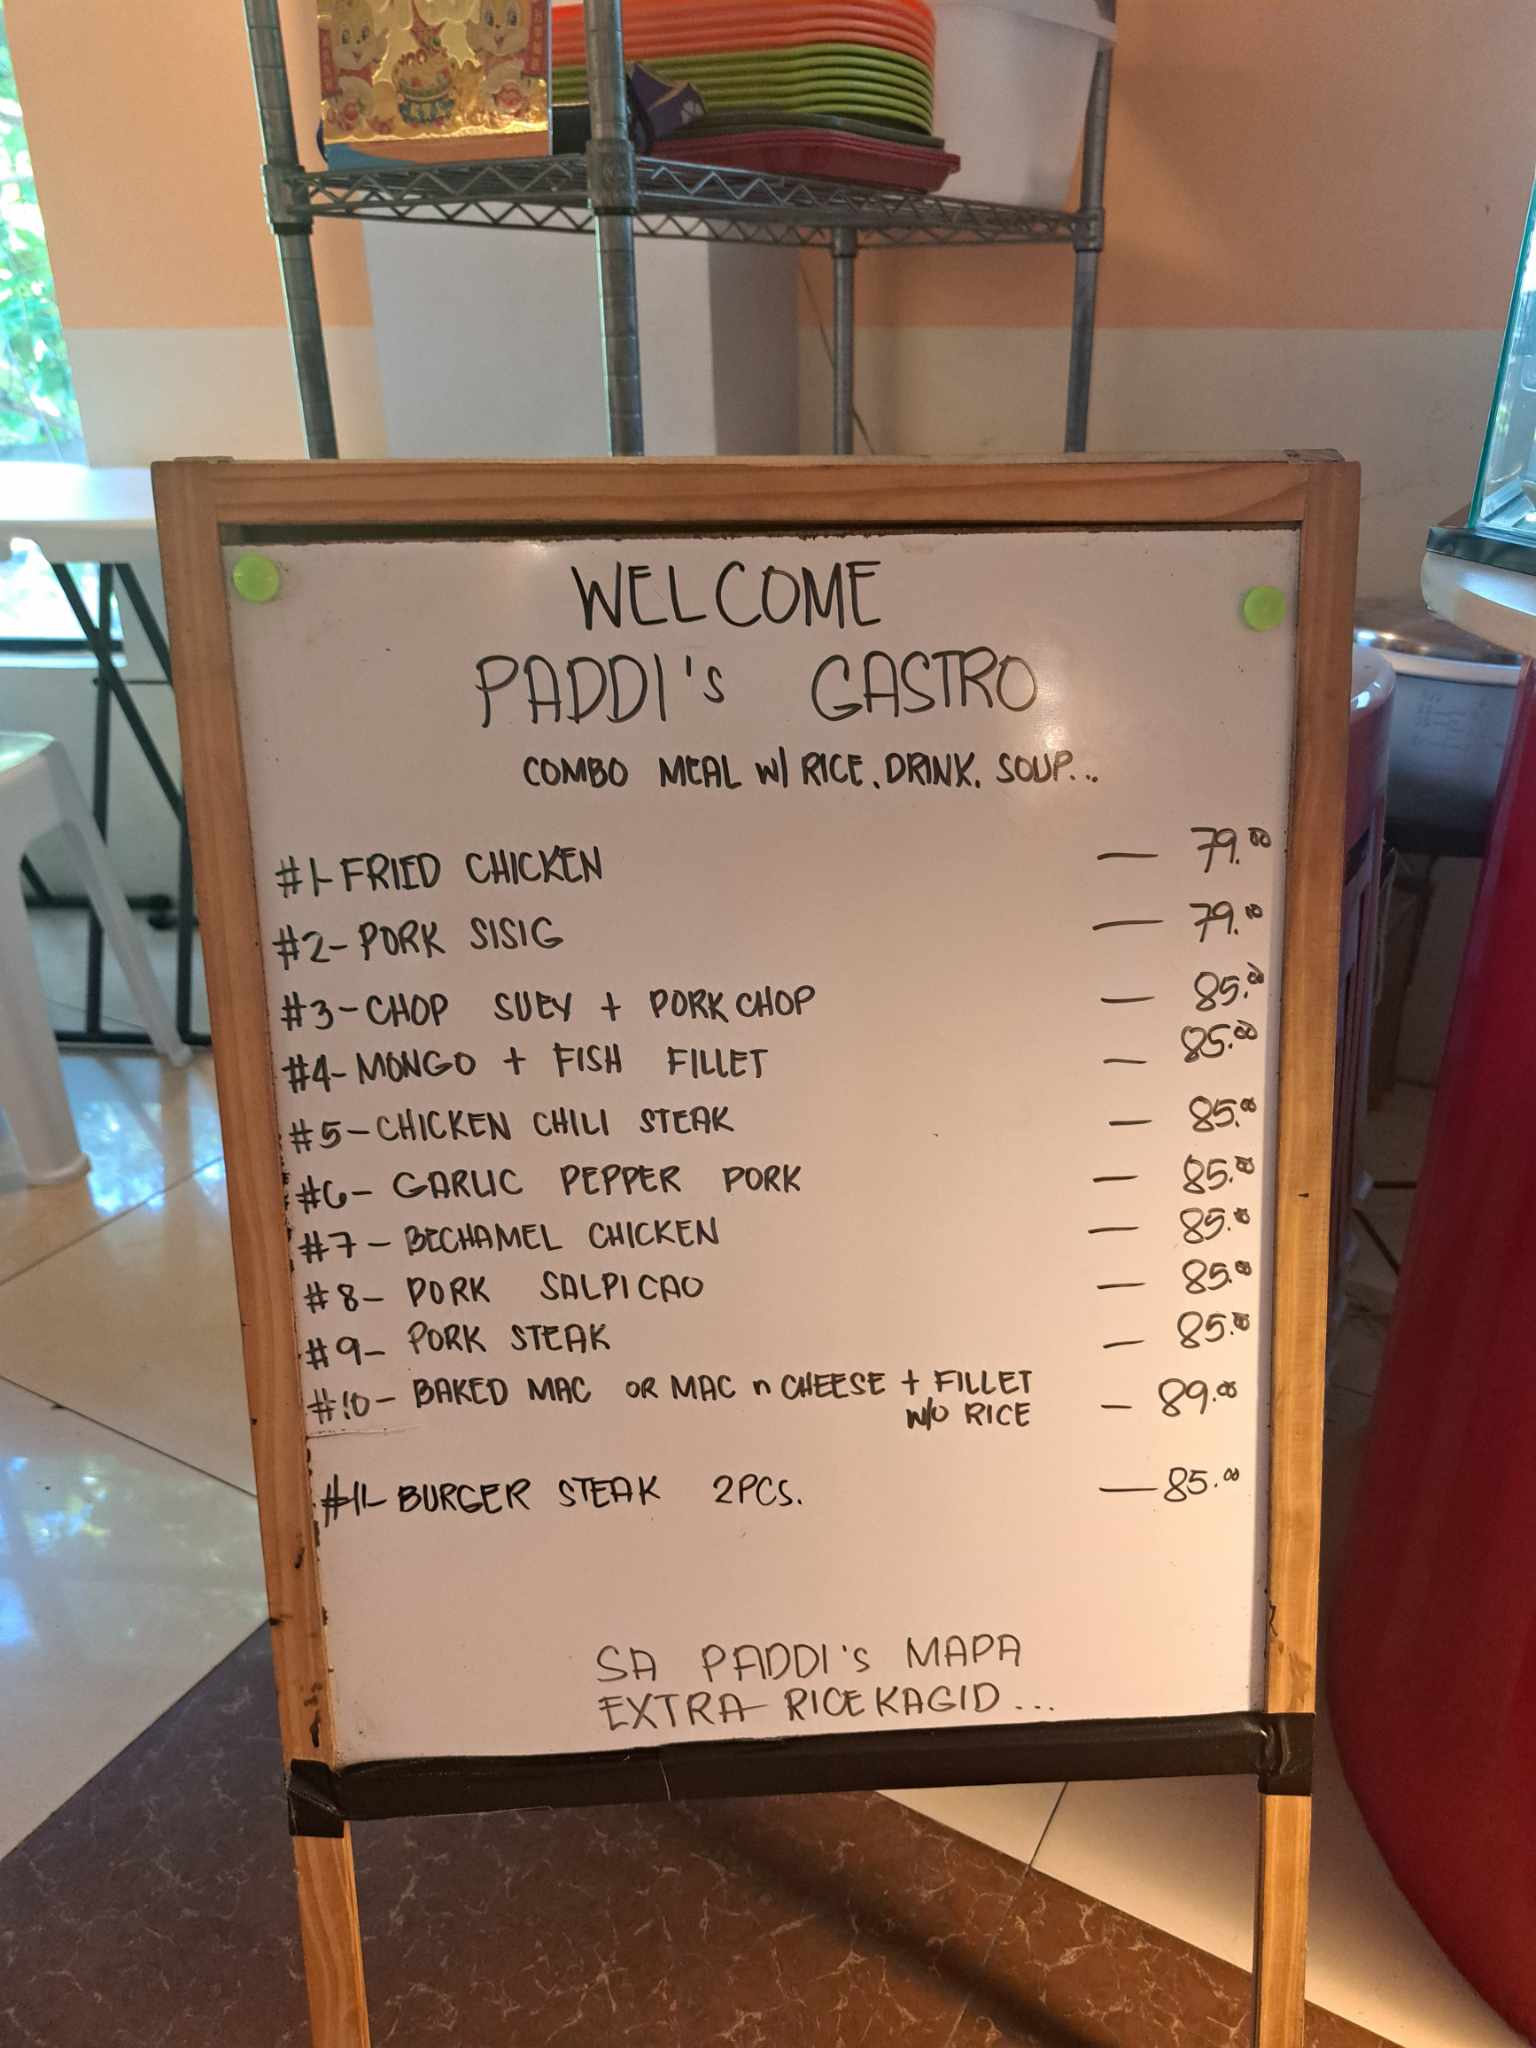 WELCOME
PADDI's GASTRO
COMBO MEAL W/ RICE, DRINK, SOUP...
#1-FRIED CHICKEN — 79.00
#2-PORK SISIG — 79.00
#3-CHOP SUEY + PORK CHOP — 85.00
#4-MONGO + FISH FILLET — 85.00
#5-CHICKEN CHILI STEAK — 85.00
#6-GARLIC PEPPER PORK — 85.00
#7-BECHAMEL CHICKEN — 85.00
#8-PORK SALPICAO — 85.00
#9-PORK STEAK — 85.00
#10-BAKED MAC OR MAC n CHEESE + FILLET — 89.00
W/O RICE
#11-BURGER STEAK 2PCS. — 85.00
SA PADDI's MAPA
EXTRA-RICE KAGID...